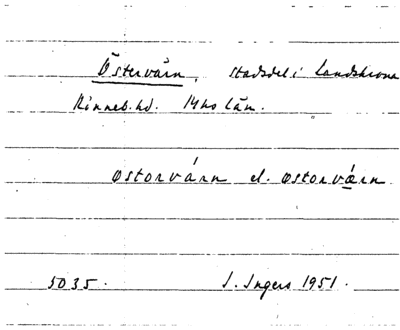 Östervärn, stadsdel i Landskrona
Rinneb. hd. Mho län.
østorvárn el. østorværn
5035. I. Ingers 1951.